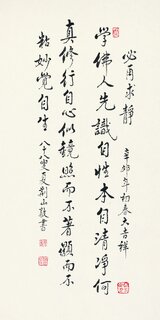 學佛人先識自性本自清淨何
必再求靜
辛卯年初春大吉祥
真修行自心似鏡照而不著顯而不
黏妙覺自生
八十八叟夏荊山敬書